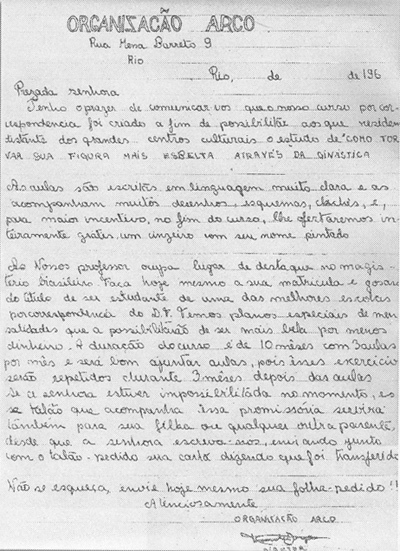 ORGANIZAÇÃO ARCO
Rua Mena Barreto 9
Rio
Rio, de de 196
Prezada senhora
Tenho o prazer de comunicar-vos que o nosso curso por cor-
respondencia foi criado a fim de possibilitar aos que residem
distante dos grandes centros culturais o estudo de "COMO TOR
NAR SUA FIGURA MAIS ESBELTA ATRAVÉS DA GINÁSTICA
As aulas são escritas em linguagem muito clara e as
acompanham muitos desenhos, esquemas, clichês, e,
para maior incentivo, no fim do curso, lhe ofertaremos in-
teiramente gratis um cinzeiro com seu nome pintado
Nosso professor ocupa lugar de destaque no magis-
tério brasileiro. Faca hoje mesmo a sua matricula e gosará
do titulo de ser estudante de uma das melhores escolas
por correspondência do D.F. Temos planos especiais de men-
salidades que a possibilitarão de ser mais bela por menos
dinheiro. A duração do curso é de 10 mêses com 3 aulas
por mês e será bom ajuntar aulas, pois êsses exercicios
serão repetidos durante 3 mêses depois das aulas
Se a senhora estiver impossibilitada no momento, es
se talão que acompanha essa promissória servirá
também para sua filha ou qualquer outra parenta,
desde que a senhora escreva-nos, enviando junto
com o talão-pedido sua carta dizendo que foi transferido
Não se esqueça, envie hoje mesmo sua folha-pedido!!
Atenciosamente
ORGANIZAÇÃO ARCO